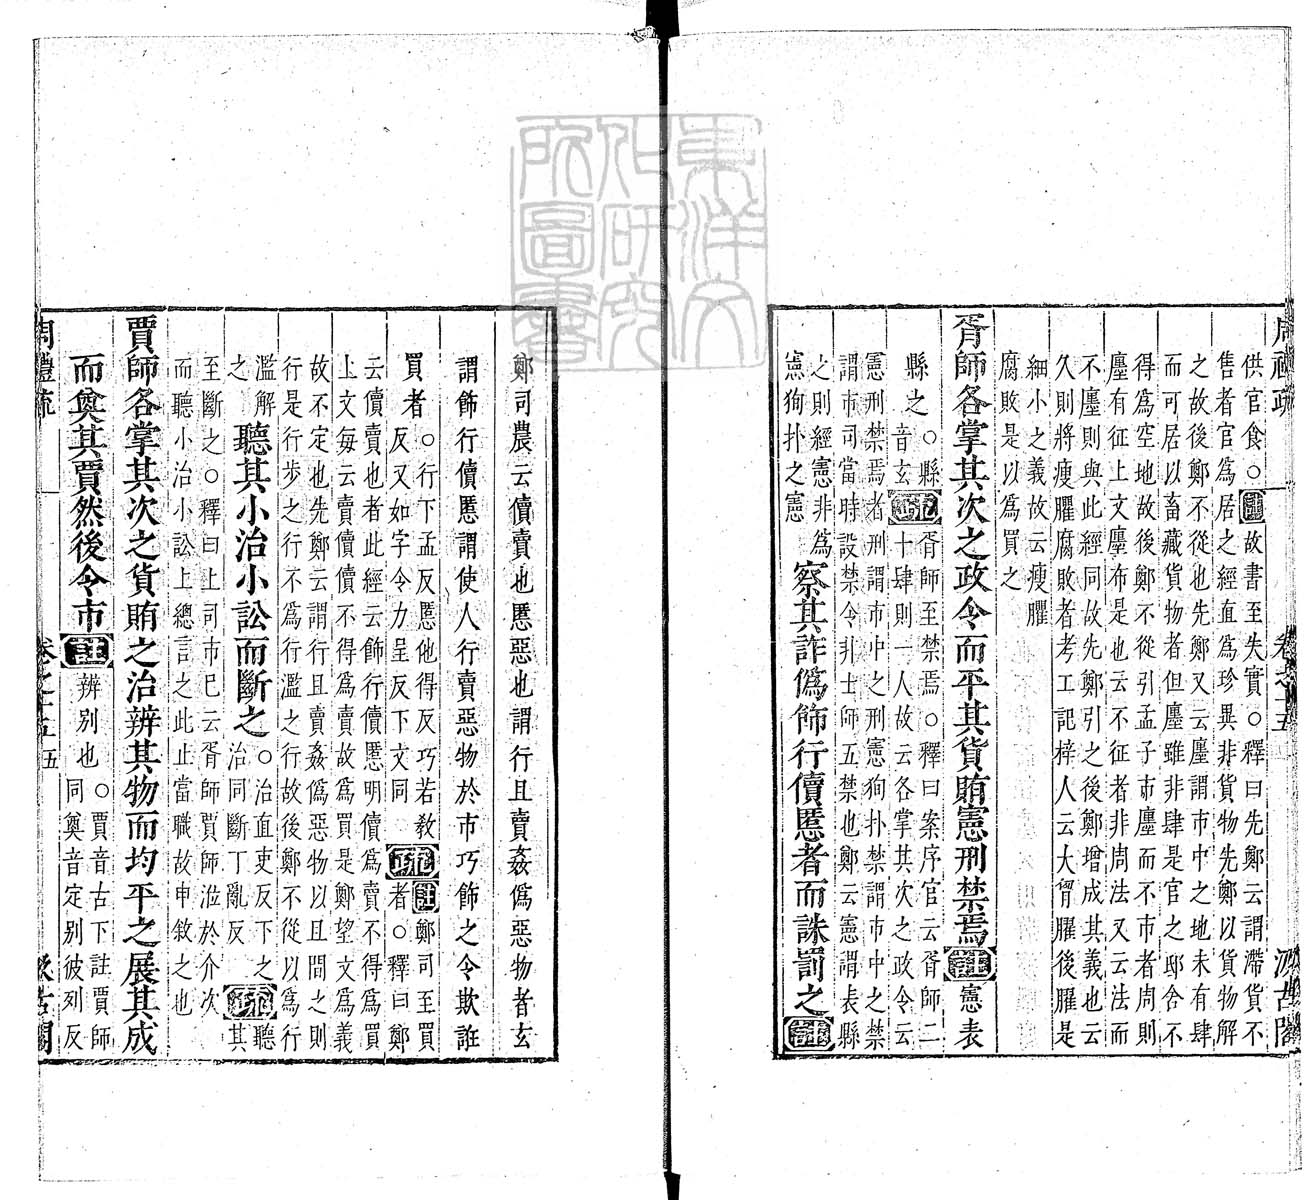 周禮疏
卷之十五
汲古閣
供官食○註故書至失實○釋曰先鄭云謂滯貨不
售者官爲居之經直爲珍異非貨物先鄭以貨物解
之故後鄭不從也先鄭又云廛謂市中之地未有肆
而可居以畜藏貨物者但廛雖非肆是官之邸舍不
得爲空地故後鄭不從引孟子市廛而不市者周則
廛有征上文廛布是也云不征者非周法又云法而
不廛則與此經同故先鄭引之後鄭增成其義也云
久則將瘦臞腐敗者考工記梓人云大胷臞後臞是
細小之義故云瘦臞
腐敗是以爲買之
胥師各掌其次之政令而平其貨賄憲刑禁焉註憲表
縣之○縣
音玄疏胥師至禁焉○釋曰案序官云胥師二
十肆則一人故云各掌其次之政令云
憲刑禁焉者刑謂市中之刑憲狗扑禁謂市中之禁
謂市司當時設禁令非士師五禁也鄭云憲謂表縣
之則經憲非爲
憲狗扑之憲
察其詐僞飾行儥慝者而誅罰之註
鄭司農云儥賣也慝惡也謂行且賣姦僞惡物者玄
謂飾行儥慝謂使人行賣惡物於市巧飾之令欺誑
買者○行下孟反慝他得反巧若教
反又如字令力呈反下文同疏註鄭司至買
者○釋曰鄭
云儥賣也者此經云飾行儥慝明儥爲賣不得爲買
上文每云賣儥儥不得爲賣故爲買是鄭望文爲義
故不定也先鄭云謂行且賣姦僞惡物以且間之則
行是行步之行不爲行濫之行故後鄭不從以爲行
濫解
之
聽其小治小訟而斷之○治直吏反下之
治同斷丁亂反疏聽
其
至斷之○釋曰上司市巳云胥師賈師涖於介次
而聽小治小訟上總言之此止當職故申敘之也
賈師各掌其次之貨賄之治辨其物而均平之展其成
而奠其賈然後令市註辨別也○賈音古下註賈師
同奠音定別彼列反
周禮疏
卷之十五
五
汲古閣
東洋文化研究所圖書